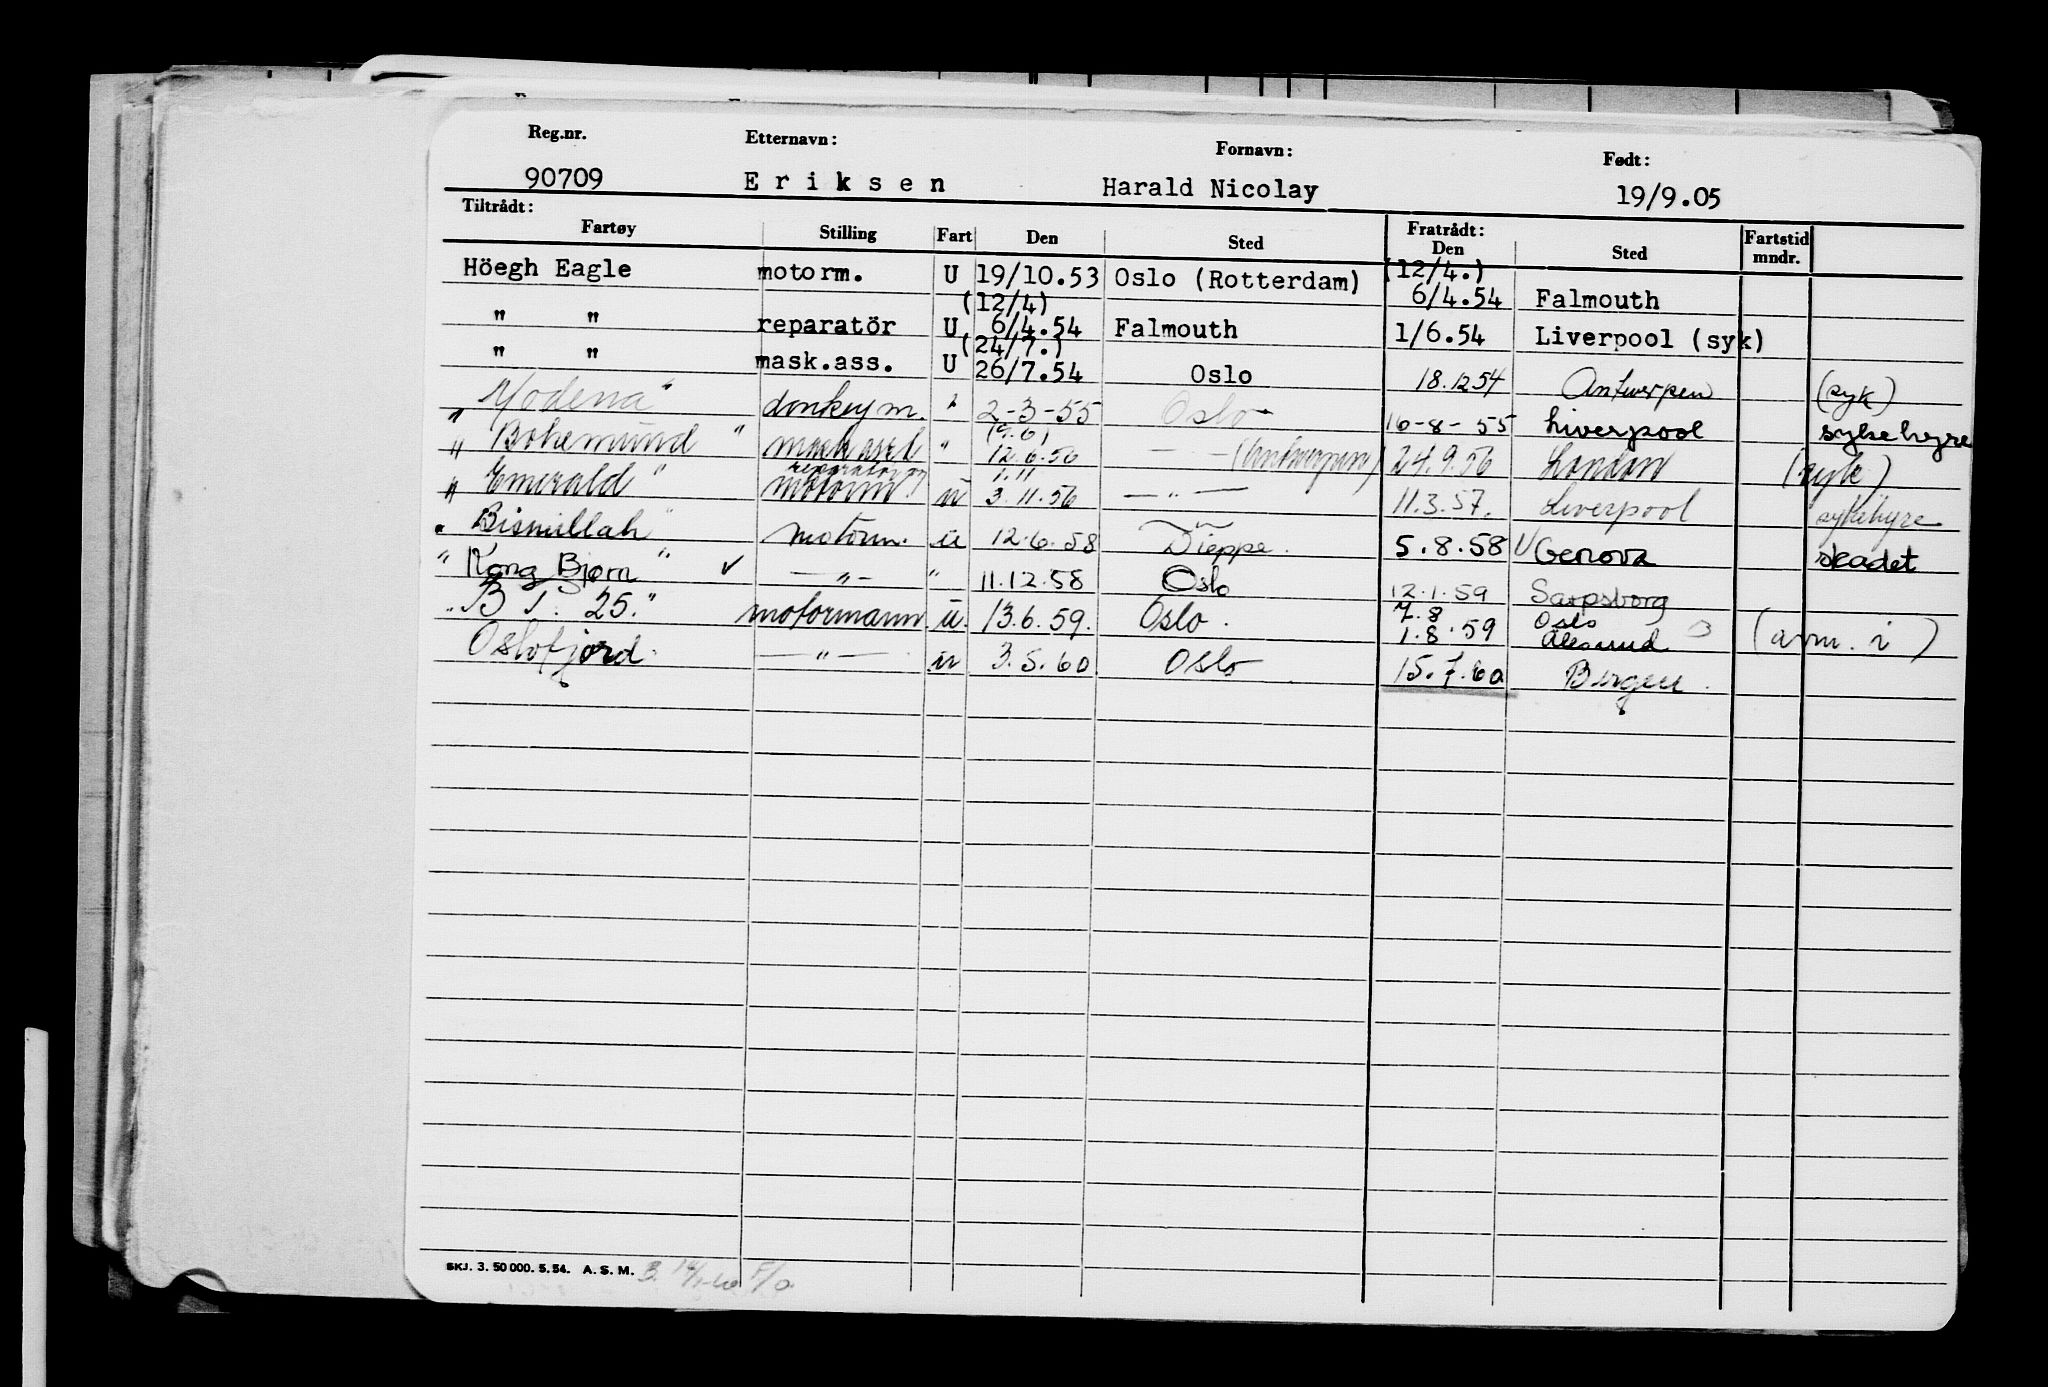 Reg.nr. Etternavn: Fornavn: Født:
90709 Eriksen Harald Nicolay 19/9.05
Tiltrådt: Fratrådt:
Fartøy Stilling Fart Den Sted Den Sted Fartstid mndr.
Höegh Eagle motorm. U 19/10.53 Oslo (Rotterdam) (12/4.) 6/4.54 Falmouth
" " reparatör U (12/4) 6/4.54 Falmouth 1/6.54 Liverpool (syk)
" " mask.ass. U (24/7.) 26/7.54 Oslo 18.12.54 Antwerpen (syk)
" Modena " donkeym. " 2-3-55 Oslo 16-8-55 Liverpool sykehyre
" Bohemund " mask ass " (9.6) 12.6.56 — (Antwerpen) 24.9.56 London (syk)
" Emerald " reparatør og motorm. u 1.11 3.11.56 — " — 11.3.57. Liverpool sykehyre
" Bismillah " motorm. u 12.6.58 Dieppe. 5.8.58 √ Genova skadet
" Kong Bjørn " ✓ — " — " 11.12.58 Oslo 12.1.59 Sarpsborg
" B.T. 25. " motormann u. 13.6.59. Oslo. 7.8 1.8.59 Oslo Ålesund (avm. i)
Oslofjord. — " — u 3.5.60 Oslo 15.7.60 Bergen.
SKJ. 3. 50 000. 5. 54. A. S. M.